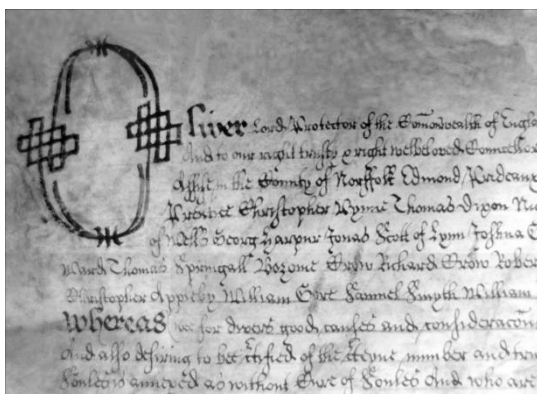 Oliver Lord Protector of the Comonwealth of Engla
And to our right trusty & right welbeloved Councellor
Assise in the County of Norffolk Edmond Prideaux
Prentice Christopher Wynne Thomas Dixon
of Wells Georg Harpur Jonas Scott of Lynn Joshua
Ward Thomas Springall Bozome Crow Richard Crow Rober
Christopher Appleby William Gire Samuel Smyth William
Whereas wee for divers good causes and consideracon
And also desiring to bee certified of the trewe number and
annexed as without Cure of Soules And who are